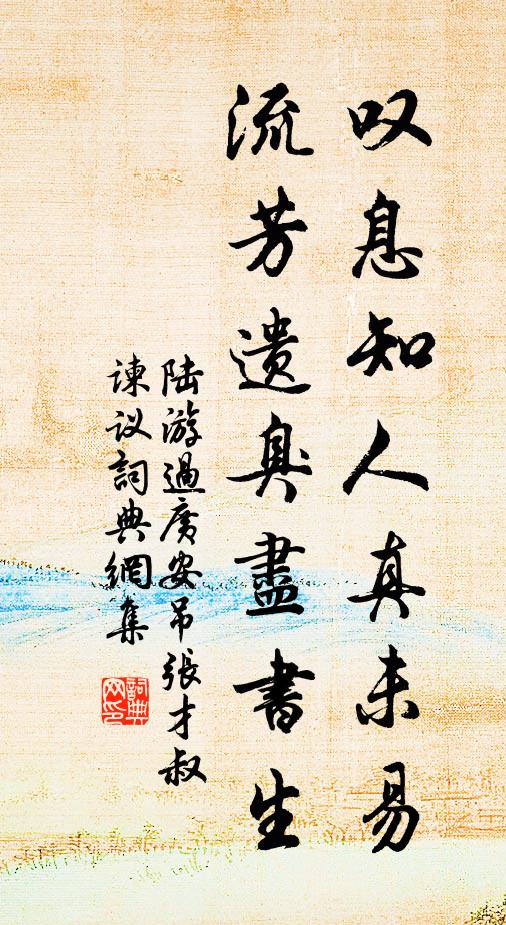 叹息知人真未易
流芳遗臭盡書生
陆游過廣安吊張才叔
谏议詞典網集
詞典网印